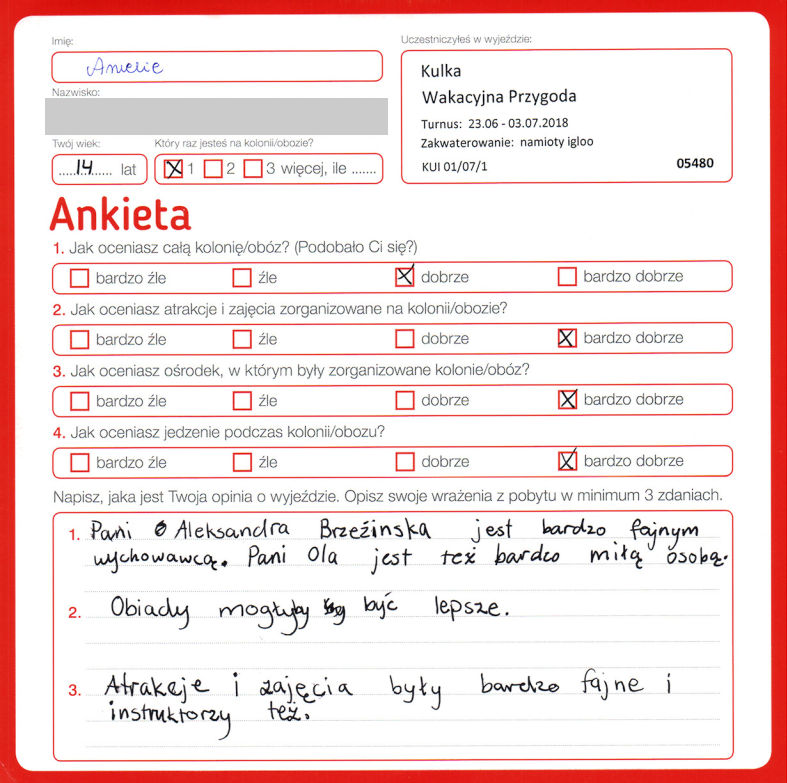 Imię:
Amelie
Nazwisko:
Twój wiek:
14 lat
Który raz jesteś na kolonii/obozie?
1 2 3 więcej, ile .......
Uczestniczyłeś w wyjeździe:
Kulka
Wakacyjna Przygoda
Turnus: 23.06 - 03.07.2018
Zakwaterowanie: namioty igloo
KUI 01/07/1 05480
Ankieta
1. Jak oceniasz całą kolonię/obóz? (Podobało Ci się?)
bardzo źle źle dobrze bardzo dobrze
2. Jak oceniasz atrakcje i zajęcia zorganizowane na kolonii/obozie?
bardzo źle źle dobrze bardzo dobrze
3. Jak oceniasz ośrodek, w którym były zorganizowane kolonie/obóz?
bardzo źle źle dobrze bardzo dobrze
4. Jak oceniasz jedzenie podczas kolonii/obozu?
bardzo źle źle dobrze bardzo dobrze
Napisz, jaka jest Twoja opinia o wyjeździe. Opisz swoje wrażenia z pobytu w minimum 3 zdaniach.
1. Pani Aleksandra Brzezińska jest bardzo fajnym
wychowawcą. Pani Ola jest też bardzo miłą osobą.
2. Obiady mogłyby być lepsze.
3. Atrakcje i zajęcia były bardzo fajne i
instruktorzy też.